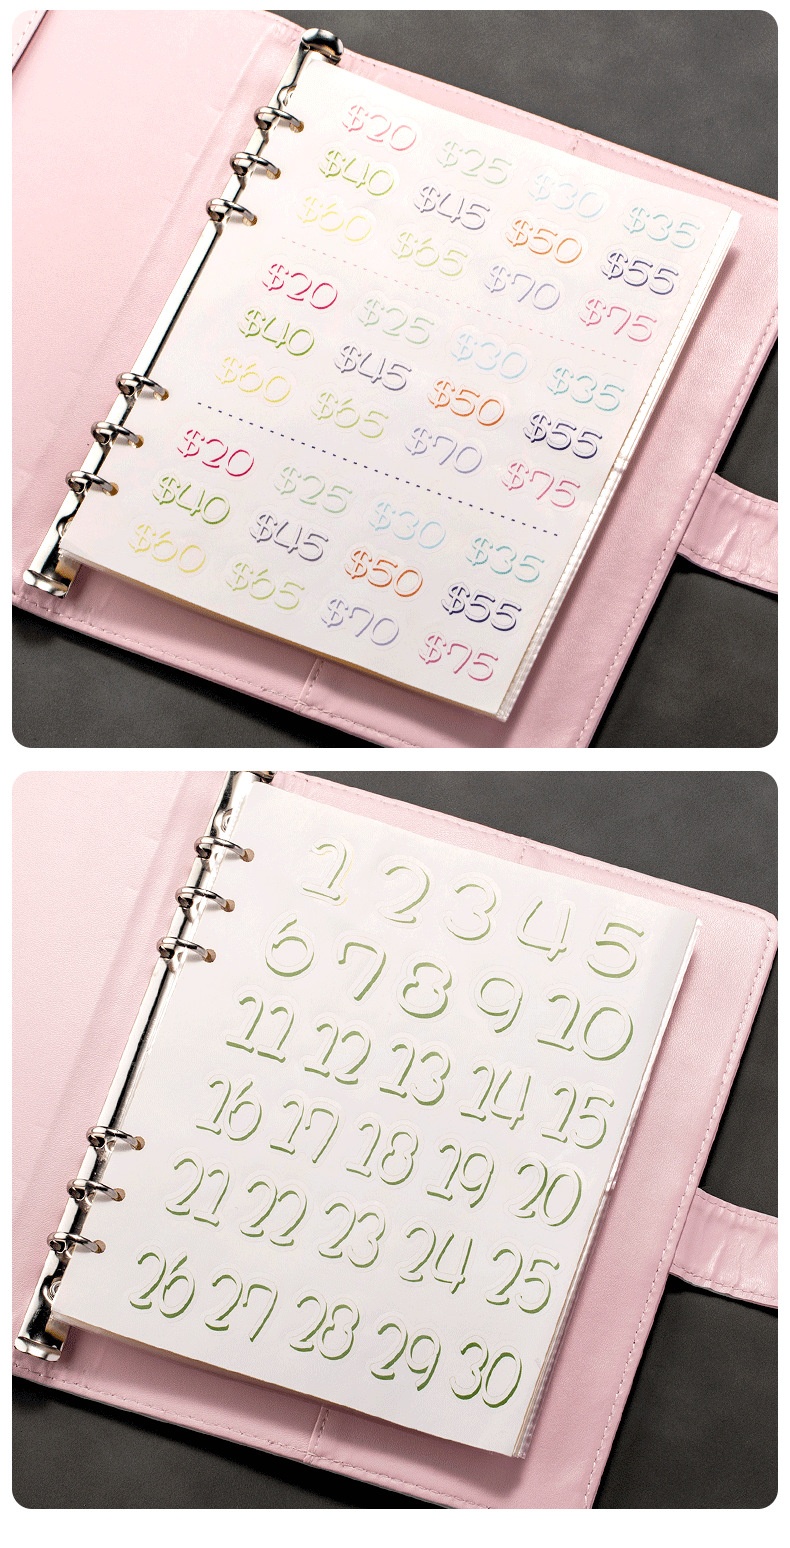 $20 $25 $30 $35
$40 $45 $50 $55
$60 $65 $70 $75
$20 $25 $30 $35
$40 $45 $50 $55
$60 $65 $70 $75
$20 $25 $30 $35
$40 $45 $50 $55
$60 $65 $70 $75
1 2 3 4 5
6 7 8 9 10
11 12 13 14 15
16 17 18 19 20
21 22 23 24 25
26 27 28 29 30